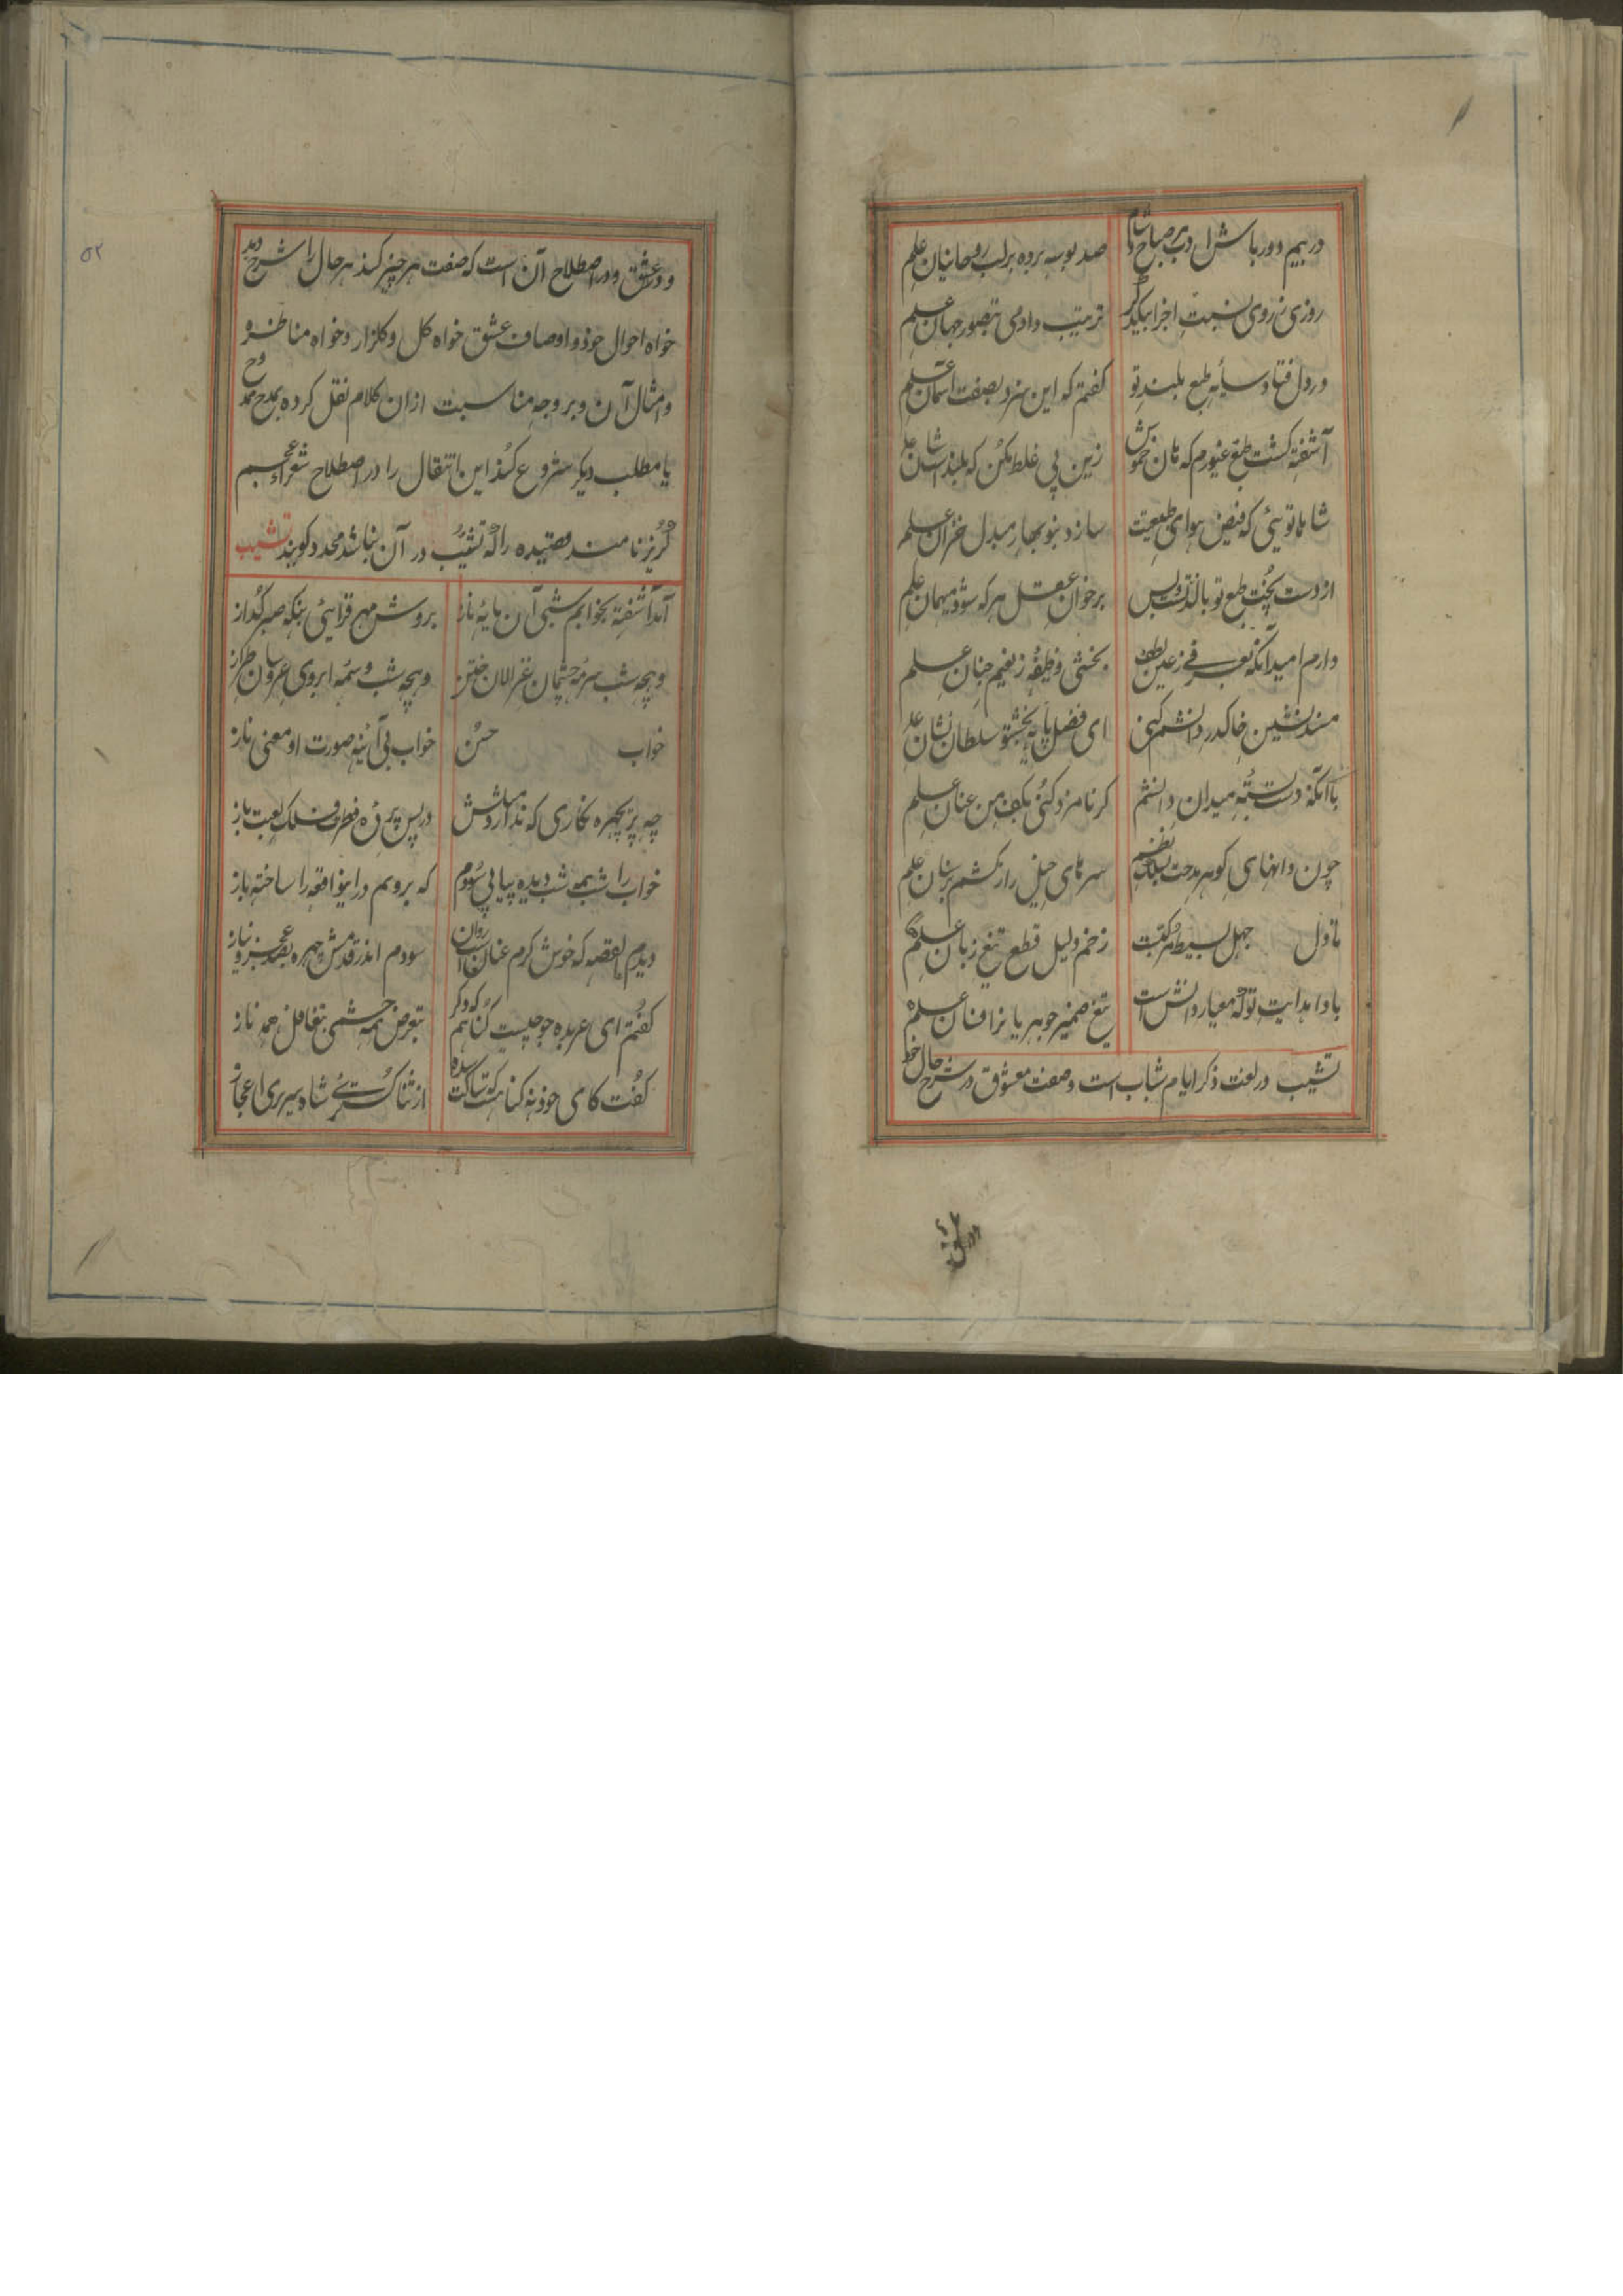 در بیم دور باش ادب هر صباح و شام صد بوسه برده بر لب روحانیان علم
روزی ز روی نسبت اجزا بیکدگر ترتیب دادمی بتصور جهان علم
در دل فتاد سایهٔ طبع بلند تو کفتم که این سزد بصفت آسمان علم
آشفته کشت طبع غیورم که هان خموش زین پی غلط مکن که بلند آشیان علم
شاها توئی که فیض هوای طبیعتت سازد بنوبهار مبدل خزان علم
از دست پخت طبع تو با لذتست و بس بر خوان عقل هر که شود میهمان علم
دارم امید آنکه بعرفی ز عین لطف بخشی وظیفه ز نعیم جنان علم
مسند نشین خاک در دانشم کنی ای فضل پایه بخش تو سلطان نشان علم
با آنکه دست بسته میدان دانشم کر نامزد کنی بکف من عنان علم
چون دانهای کوهر مدحت بسلک نظم سرهای جهل را بکشم بر سنان علم
تا دل جهل بسیط و مرکبست زخم دلیل قطع تیغ زبان علم
بادا هدایت تو که معیار دانش است تیغ ضمیر جوهریانرا فسان علم
تشبیب در لغت ذکر ایام شباب است وصفت معشوق در شرح حال خود
و عشق و در اصطلاح آن است که صفت هر چیز کند هر حال را شرح دهد
خواه احوال خود و اوصاف عشق خواه کل و کلزار و خواه مناظره
و امثال آن و بر وجه مناسبت ازان کلام نقل کرده بمدح ممدوح
یا مطلب دیکر شروع کند این انتقال را در اصطلاح شعراء عجم
کریز نامند و قصیده را که تشبیب در آن نباشد محدود کویند تشبیب
آمد آشفته بخوابم شبی آن مایهٔ ناز بروش مهر فزائی بنکه صبر کداز
وه چه شب سرمهٔ چشمان غزالان ختن وه چه شب وسمه ابروی عروسان طراز
خواب حسن خواب نی آئینه صورت او معنی ناز
چه پریچهره نکاری که ندارد مثلش در پس پردهٔ فطرت فلک لعبت باز
خواب را شب همه شب دیده بپا می سودم که برویم در این واقعه را ساخته باز
دیدم القصه که خوش کرم عنانست روان سودم اندر قدمش چهره بصد عجز و نیاز
کفتم ای عربده جو چیست کناهم که دکر بتعرض همه چشمی بتغافل همه ناز
کفت کای خود نه کناهست که ساکت شده از ثنا کستری شاه سریر اعجاز
ورق
٥٢